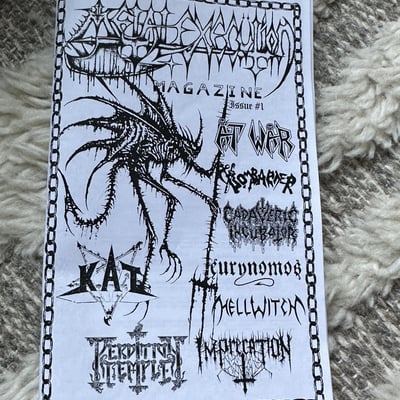 Metal Execution
MAGAZINE
Issue #1
AT WAR
CADAVERIC
INCUBATOR
KAT
eurynomos
HELLWITCH
PERDITION
TEMPLE
IMPRECATION